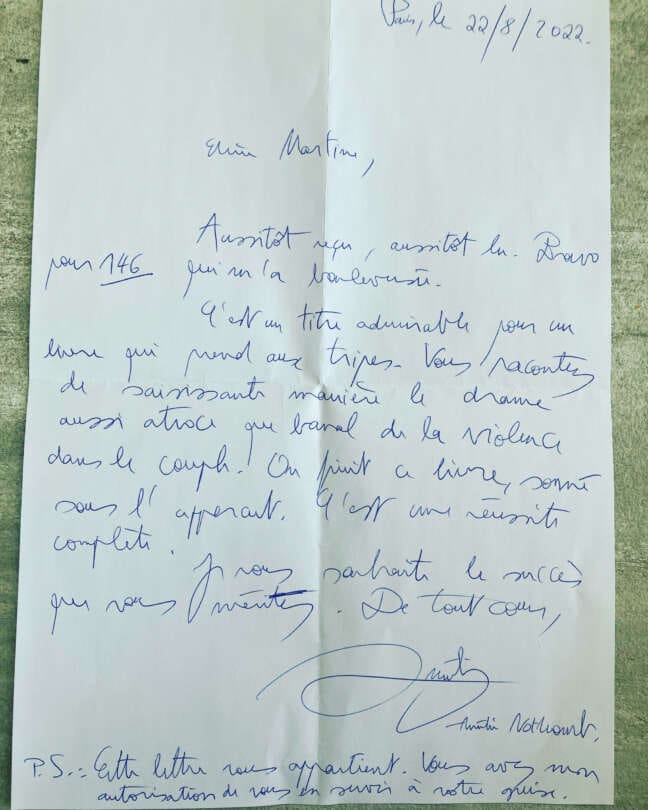 Paris, le 22/8/2022.
Chère Martine,
Aussitôt reçu, aussitôt lu. Bravo
pour 146 qui m'a bouleversée.
C'est un titre admirable pour un
livre qui prend aux tripes. Vous racontez
de saisissante manière le drame
aussi atroce que banal de la violence
dans le couple. On finit ce livre, sonné
sous l'
C'est une réussite
complète.
Je vous souhaite le succès
que vous méritez. De tout cœur,
Amélie Nothomb.
P.S.: Cette lettre vous appartient. Vous avez mon
autorisation de vous en servir à votre guise.